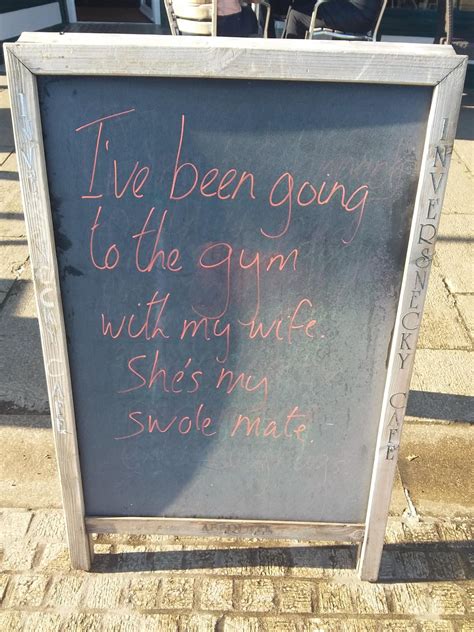 I've been going
to the gym
with my wife.
She's my
swole mate.
INVERSNECKY CAFE
INVERSNECKY CAFE